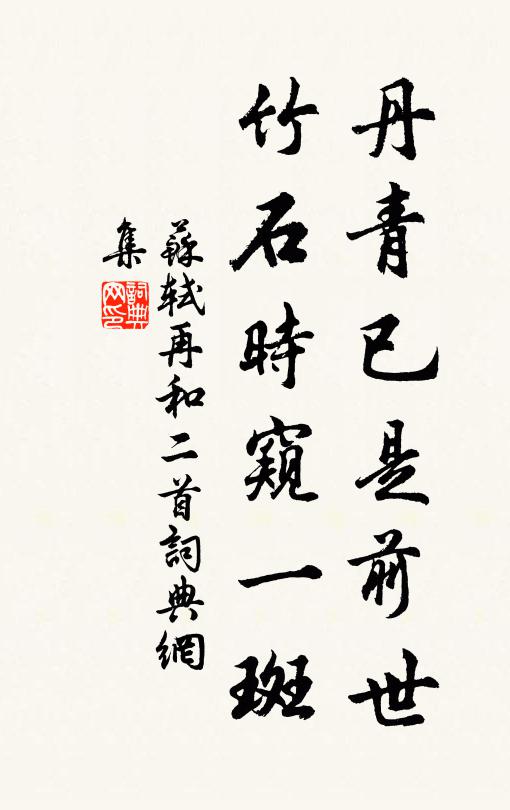 丹青已是前世
竹石時窺一斑
蘇軾再和二首詞典網
集
詞典網印